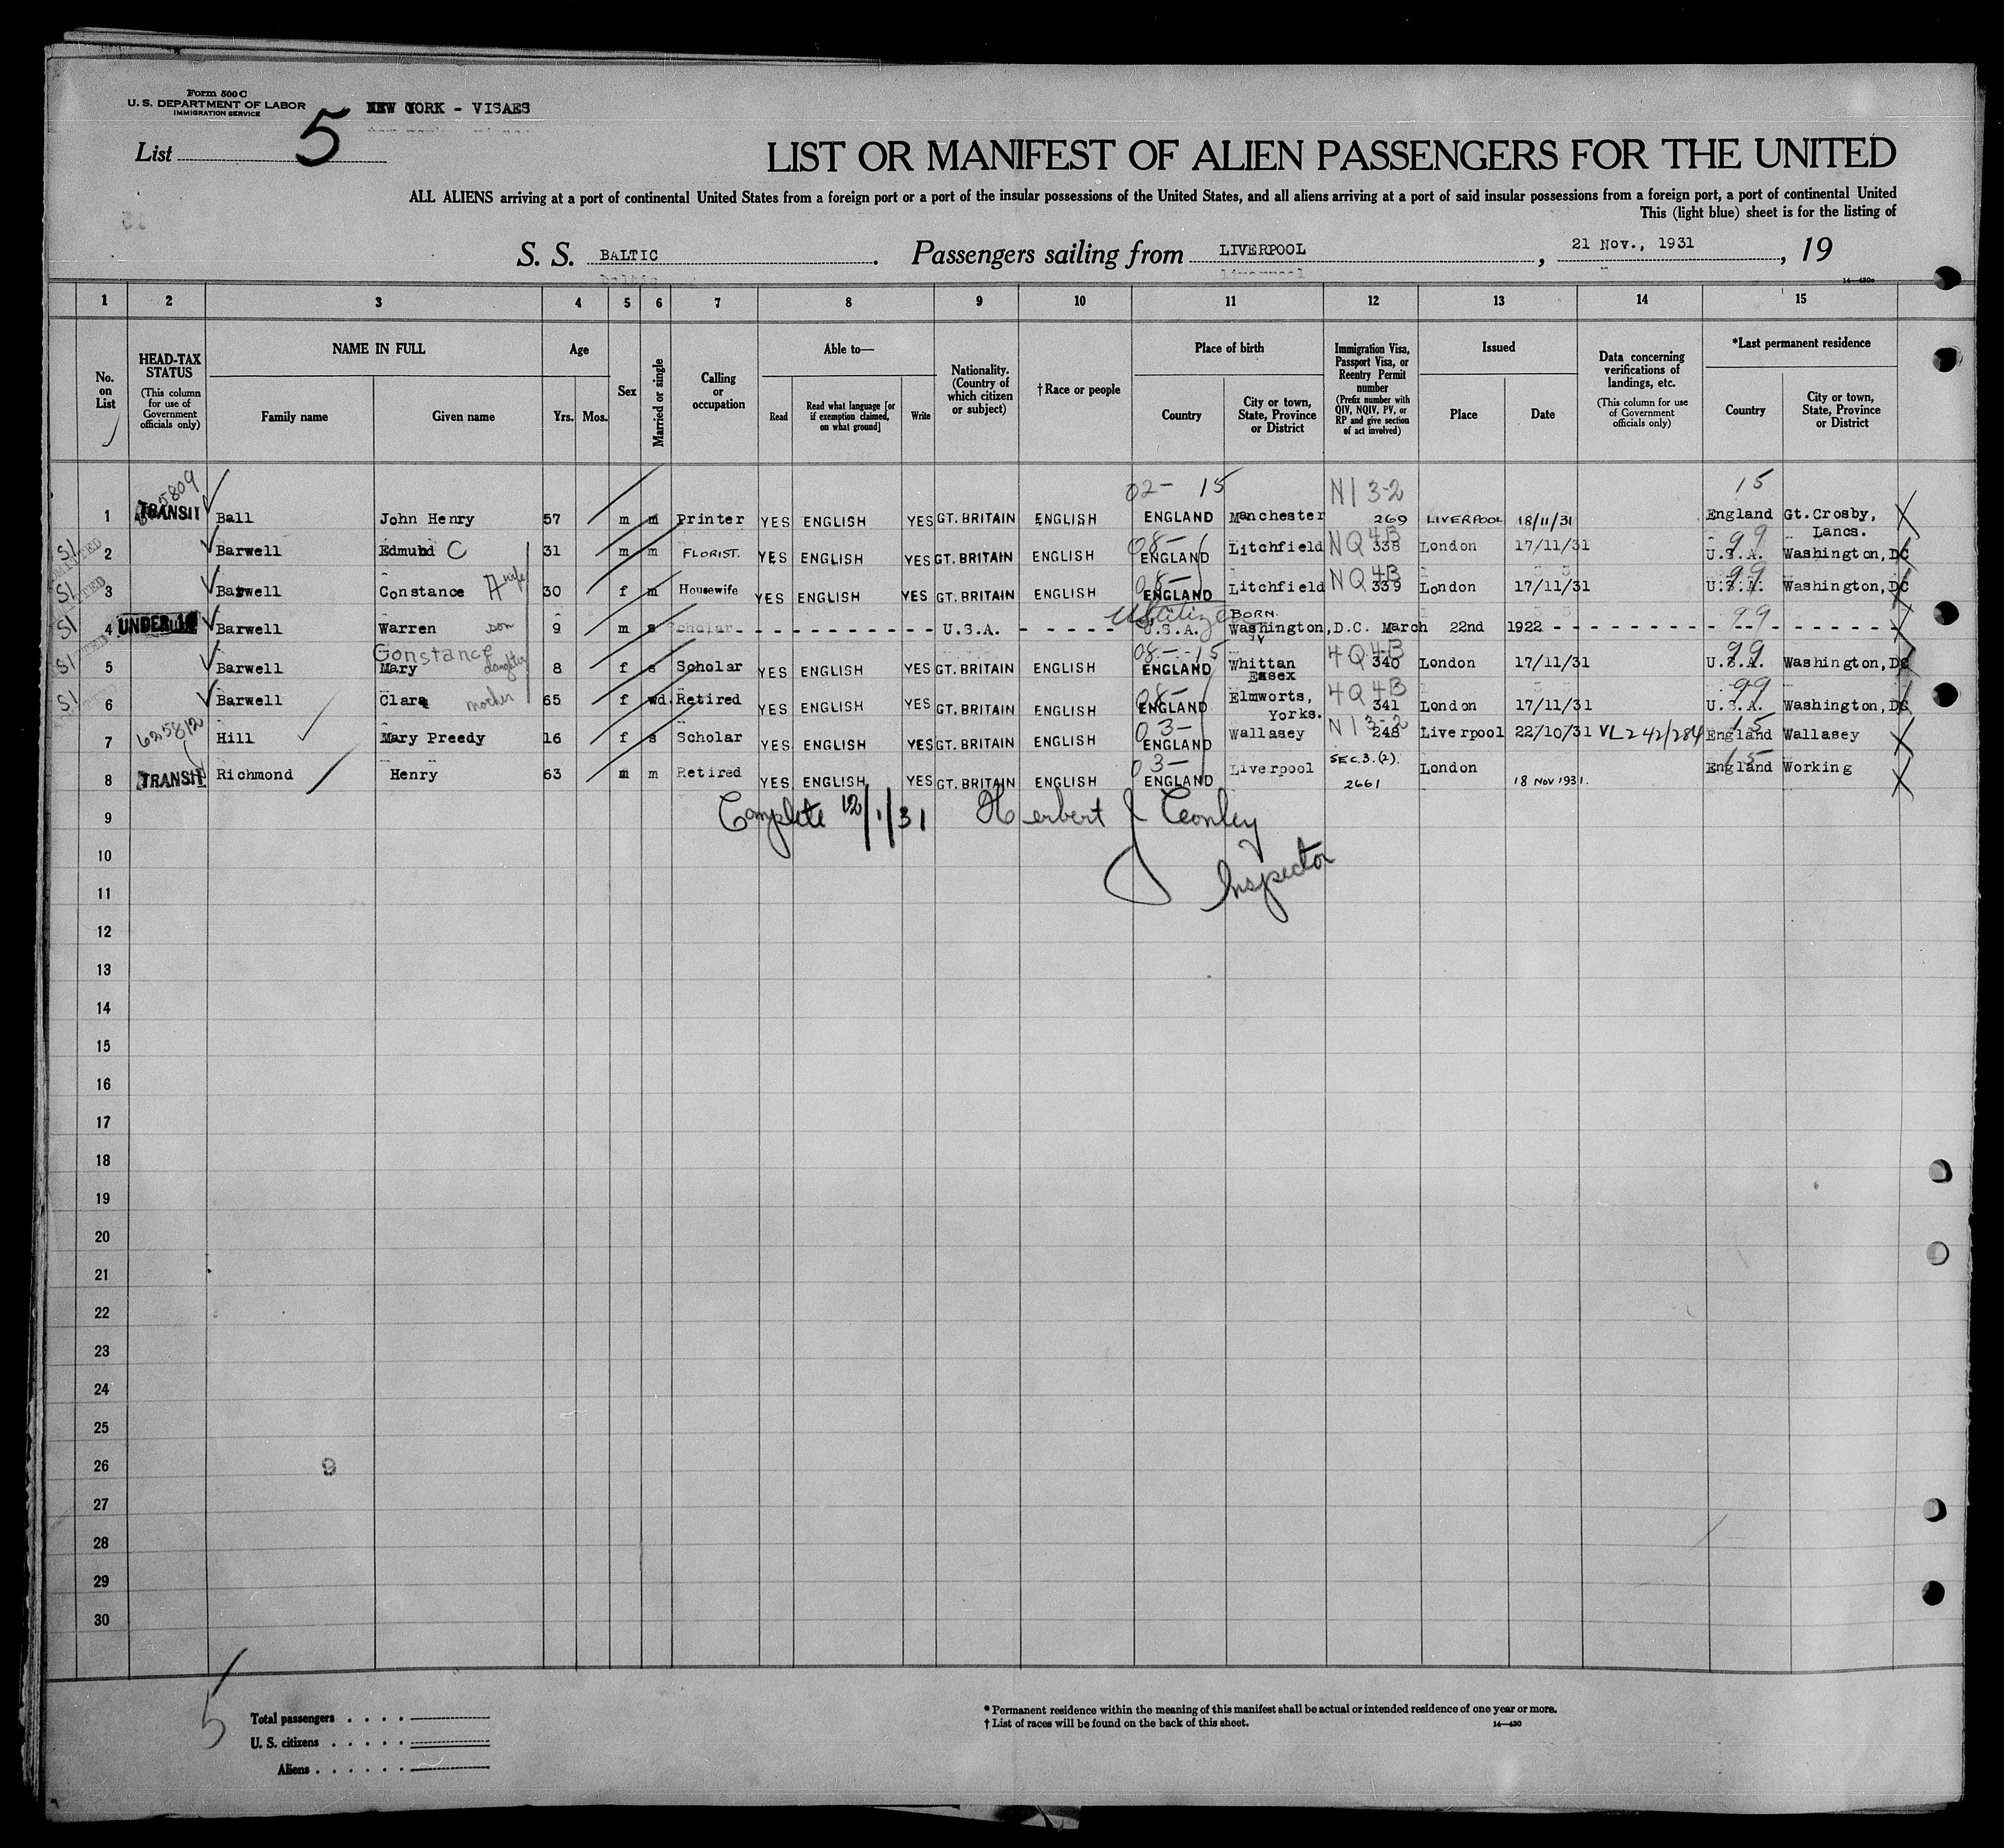 Form 500 C
U. S. DEPARTMENT OF LABOR
IMMIGRATION SERVICE
NEW YORK - VISAES
List 5
LIST OR MANIFEST OF ALIEN PASSENGERS FOR THE UNITED
ALL ALIENS arriving at a port of continental United States from a foreign port or a port of the insular possessions of the United States, and all aliens arriving at a port of said insular possessions from a foreign port, a port of continental United
This (light blue) sheet is for the listing of
S. S. BALTIC. Passengers sailing from LIVERPOOL, 21 Nov., 1931, 19
14—430a
1 2 3 4 5 6 7 8 9 10 11 12 13 14 15
No. on List
HEAD-TAX STATUS (This column for use of Government officials only)
NAME IN FULL Family name Given name
Age Yrs. Mos.
Sex
Married or single
Calling or occupation
Able to— Read Read what language [or if exemption claimed, on what ground] Write
Nationality. (Country of which citizen or subject)
†Race or people
Place of birth Country City or town, State, Province or District
Immigration Visa, Passport Visa, or Reentry Permit number (Prefix number with QIV, NQIV, PV, or RP and give section of act involved)
Issued Place Date
Data concerning verifications of landings, etc. (This column for use of Government officials only)
*Last permanent residence Country City or town, State, Province or District
02- 15 NI 3-2 15
1 TRANSIT Ball John Henry 57 m m Printer YES ENGLISH YES GT. BRITAIN ENGLISH ENGLAND Manchester 269 LIVERPOOL 18/11/31 England Gt. Crosby, Lancs.
SI 2 Barwell Edmund C 31 m m FLORIST. YES ENGLISH YES GT. BRITAIN ENGLISH 08- ENGLAND Litchfield NQ4B 338 London 17/11/31 99 U.S.A. Washington, DC
SI 3 Barwell Constance A wife 30 f m Housewife YES ENGLISH YES GT. BRITAIN ENGLISH 08- ENGLAND Litchfield NQ4B 339 London 17/11/31 99 U.S.A. Washington, DC
SI 4 UNDER 16 Barwell Warren son 9 m s Scholar U.S.A. US citizen U.S.A. BORN Washington, D.C. March 22nd 1922 99
SI 5 Barwell Constance Mary daughter 8 f s Scholar YES ENGLISH YES GT. BRITAIN ENGLISH 08- 15 ENGLAND Whittan Essex 4Q4B 340 London 17/11/31 99 U.S.A. Washington, DC
SI 6 Barwell Clara mother 65 f wd. Retired YES ENGLISH YES GT. BRITAIN ENGLISH 08- ENGLAND Elmworts, Yorks. 4Q4B 341 London 17/11/31 99 U.S.A. Washington, DC
625812 7 Hill Mary Preedy 16 f s Scholar YES ENGLISH YES GT. BRITAIN ENGLISH 03- ENGLAND Wallasey NI 3-2 248 Liverpool 22/10/31 VL242/284 15 England Wallasey
8 TRANSIT Richmond Henry 63 m m Retired YES ENGLISH YES GT. BRITAIN ENGLISH 03- ENGLAND Liverpool SEC. 3. (2). 2661 London 18 NOV 1931. 15 England Working
9 Complete 12/1/31 Herbert J Conley
10
11 Inspector
12
13
14
15
16
17
18
19
20
21
22
23
24
25
26 9
27
28
29
30
5
Total passengers
U. S. citizens
Aliens
* Permanent residence within the meaning of this manifest shall be actual or intended residence of one year or more.
† List of races will be found on the back of this sheet. 14—430